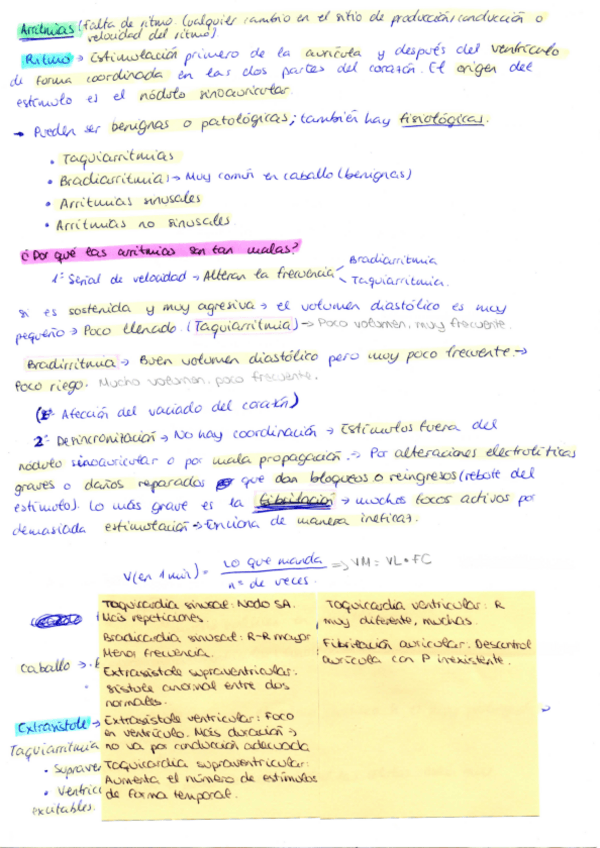 Arritmias (falta de ritmo. Cualquier cambio en el sitio de producción/conducción o
velocidad del ritmo)
Ritmo → Estimulación primero de la aurícula y después del ventrículo
de forma coordinada en las dos partes del corazón. El origen del
estímulo es el nódulo sinoauricular.
→ Pueden ser benignas o patológicas; también hay fisiológicas.
• Taquiarritmias
• Bradiarritmias → Muy común en caballo (benignas)
• Arritmias sinusales
• Arritmias no sinusales
¿Por qué las arritmias son tan malas?
1º Señal de velocidad → Alteran la frecuencia
Bradiarritmia
Taquiarritmia.
si es sostenida y muy agresiva → el volumen diastólico es muy
pequeño → Poco llenado. (Taquiarritmia) → Poco volumen, muy frecuente.
Bradirritmia → Buen volumen diastólico pero muy poco frecuente. →
Poco riego. Mucho volumen, poco frecuente.
(2º Afección del vaciado del corazón)
2º Desincronización → No hay coordinación → Estímulos fuera del
nóduto sinoauricular o por mala propagación. → Por alteraciones electrolíticas
graves o daños reparados que dan bloqueos o reingresos (rebote del
estímulo). Lo más grave es la fibrilación → muchos focos activos por
demasiada estimulación → Funciona de manera ineficaz.
V(en 1 min) = Lo que manda / nº de veces. ⇒ VM = VL • FC
Taquicardia sinusal: Nodo SA.
Más repeticiones.
Bradicardia sinusal: R-R mayor
Menor frecuencia.
Extrasístole supraventricular:
sístole anormal entre dos
normales.
Extrasístole ventricular: Foco
en ventrículo. Más duración →
no va por conducción adecuada
Taquicardia supraventricular:
Aumenta el número de estímulos
de forma temporal.
Taquicardia ventricular: R
muy diferente, muchas.
Fibrilación auricular: Descontrol
aurícula con P inexistente.
Caballo →
Extrasístole →
Taquiarritmia
• Suprave
• Ventric
excitables.